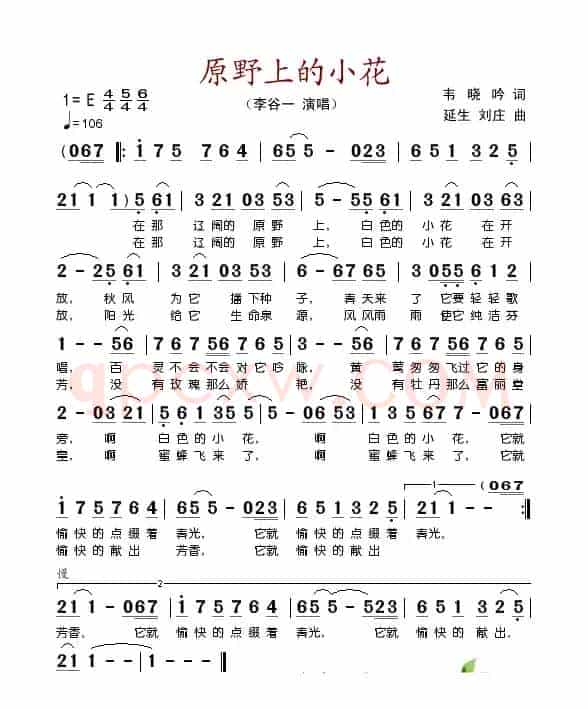 原野上的小花
1= E 4/4 5/4 6/4
（李谷一 演唱）
韦 晓 吟 词
♩=106
延生 刘庄 曲
( 067 ‖: i 75 764 | 655 - 023 | 651 325 |
21 1 1 ) 5 61 | 3 21 03 53 | 5 - 55 61 | 3 21 03 63 |
在那 辽阔的 原野 上， 白色的 小花 在开
在那 辽阔的 原野 上， 白色的 小花 在开
2 - 25 61 | 3 21 03 53 | 5 - 21 65 | 3 055 6 12 |
放， 秋风 为它 播下种 子， 青天来 了 它要轻轻歌
放， 阳光 给它 生命泉 源， 风风雨 雨 使它纯洁芬
唱， 百 灵不会不会对它吟 咏， 黄 莺匆匆飞过它的身
芳， 没 有玫瑰那么娇 艳， 没 有牡丹那么富丽堂
qpcxw.COM
2 - 03 21 | 5 61 35 5 | 5 - 06 53 | 561 321 | 1 - - 067 |
旁， 啊 白色的小花， 啊 白色的小花， 它就
皇， 啊 蜜蜂飞来了， 啊 蜜蜂飞来了， 它就
1 (067
i 75 7 64 | 65 5 - 023 | 651 325 | 21 1 - - :‖
愉快的点缀着 青光， 它就 愉快的点缀着 青光，
愉快的献出 芳香， 它就 愉快的献出
慢
2
21 1 - 067 | i 75 7 64 | 655 - 523 | 651 325 |
芳香， 它就 愉快的点缀着 青光， 它就 愉快的献出，
21 1 - - | 1 - - - ‖